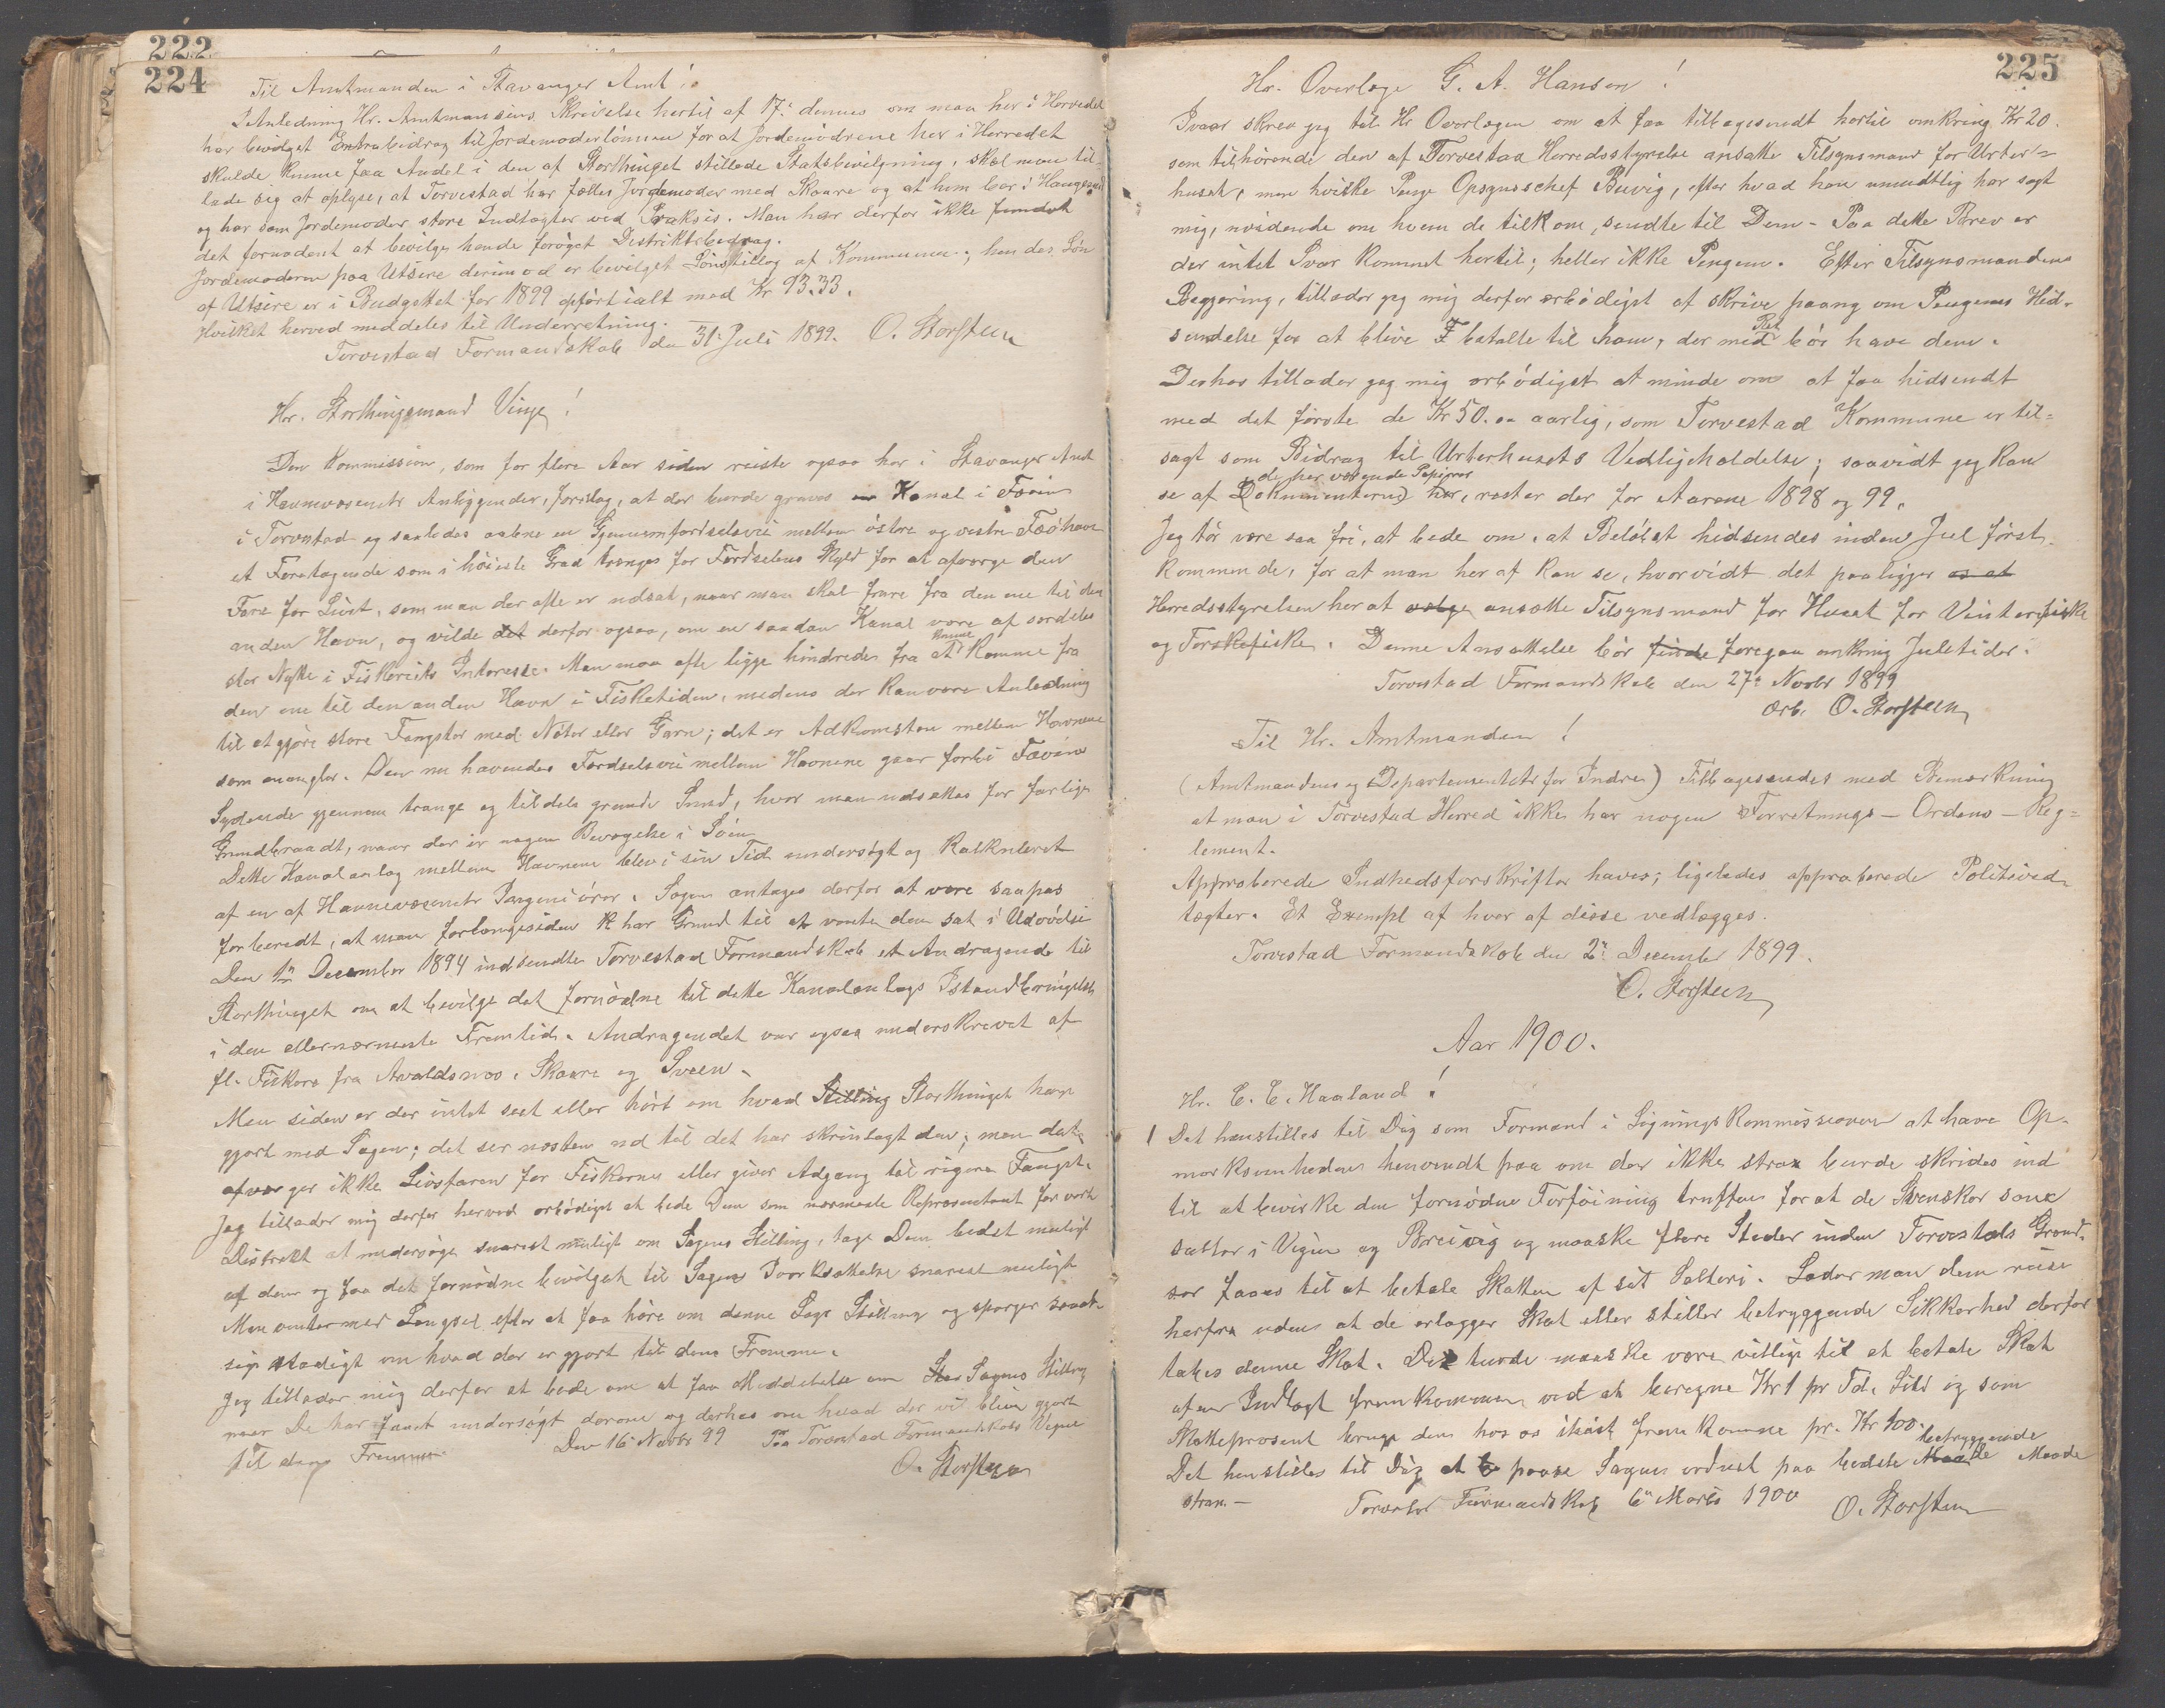 222
224
Til Amtmanden i Stavanger Amt!
I Anledning Hr. Amtmandens Skrivelse hertil af 17de dennes om man her i Herredet
har bevilget Extrabidrag til Jordemoderlönnen for at Jordemödrene her i Herredet
skulde kunne faa Andel i den af Storthinget stillede Statsbevilgning, skal man til-
lade sig at oplyse, at Torvestad har fælles Jordemoder med Skaare og at hun bor i Haugesund
og har som Jordemoder store Indtægter ved Praksis. Man har derfor ikke fundet
det fornødent at bevilge hende forøget Distriktsbidrag.
Jordemoderen paa Utsire derimod er bevilget Lønstillæg af Kommunen; hendes Løn
af Utsire er i Budgettet for 1899 opført ialt med Kr 93.33.
Hvilket herved meddeles til Underretning.
Torvestad Formandskab den 31te Juli 1899. O. Storsteen
Hr. Storthingsmand Vinje!
Den Kommission, som for flere Aar siden reiste ogsaa her i Stavanger Amt
i Havnevæsenets Anliggender, foreslog, at der burde graves en Kanal i Fæøen
i Torvestad og saaledes aabne en Gjennemfærdselsvei mellem østre og vestre Fæøhavn
et Foretagende som i høieste Grad trænges for Færdselens Skyld for at afværge den
Fare for Livet, som man der ofte er udsat, naar man skal fare fra den ene til den
anden Havn, og vilde det derfor ogsaa, om en saadan Kanal være af særdeles
stor Nytte i Fiskeriets Interesse. Man maa ofte ligge hindredes fra at kunne komme fra
den ene til den anden Havn i Fisketiden, medens der kan være Anledning
til at gjøre store Fangster med Nøter eller Garn; det er Adkomsten mellem Havnene
som mangler. Den nu havendes Færdselsvei mellem Havnene gaar forbi Fæøens
Sydende gjennem trange og tildels grunde Sund, hvor man udsættes for farlige
Grundbraadt, naar der er nogen Bevægelse i Søen.
Dette Kanalanlæg mellem Havnene blev i sin Tid undersøgt og kalkuleret
af en af Havnevæsenets Ingeniører. Sagen antages derfor at være saapas
forberedt, at man forlængesiden har Grund til at vente den sat i Udøvelse
Den 1ste December 1894 indsendte Torvestad Formandskab et Andragende til
Storthinget om at bevilge det fornødne til dette Kanalanlægs Istandbringelse
i den allernærmeste Fremtid. Andragendet var ogsaa underskrevet af
fl. Fiskere fra Avaldsnæs, Skaare og Sveen.
Men siden er der intet seet eller hørt om hvad Stilling Storthinget har
gjort med Sagen; det ser næsten ud til det har skrinlagt den; men dette
afværger ikke Livsfaren for Fiskerne eller giver Adgang til rigere Fangst.
Jeg tillader mig derfor herved ærbødigst at bede Dem som nærmeste Repræsentant for vort
Distrikt at undersøge snarest muligt om Sagens Stilling, tage Dem bedst muligt
af den og faa det fornødne bevilget til Sagens Iværksættelse snarest muligt
Man venter med Længsel efter at faa høre om denne Sags Stilling og spørger saadt
sige stadigt om hvad der er gjort til dens Fremme.
Jeg tillader mig derfor at bede om at faa Meddelelse om Sagens Stilling
naar De har faaet undersøgt derom og derhos om hvad der vil blive gjort
til dens Fremme. Den 16 Novbr 99 Paa Torvestad Formandskabs Vegne
O. Storsteen
225
Hr. Overlæge G. A. Hansen!
Ivaar skrev jeg til Hr Overlægen om at faa tilbagesendt hertil omkring Kr 20.
som tilhørende den af Torvestad Herredsstyrelse ansatte Tilsynsmand for Urter-
huset, men hvilke Penge Opsynsschef Buvig, efter hvad han mundtlig har sagt
mig, uvidende om hvem de tilkom, sendte til Dem. Paa dette Brev er
der intet Svar kommet hertil; heller ikke Pengene. Efter Tilsynsmandens
Begjæring, tillader jeg mig derfor ærbødigst at skrive paany om Pengenes Hid-
sendelse for at blive betalte til ham, der med Ret bør have dem.
Derhos tillader jeg mig ærbødigst at minde om at faa hidsendt
med det første de Kr 50.oo aarlig, som Torvestad Kommune er til-
sagt som Bidrag til Urterhusets Vedligeholdelse; saavidt jeg kan
se af (Dokumenterne) de her værende Papirer her, rester der for Aarene 1898 og 99.
Jeg tør være saa fri, at bede om, at Beløbet hidsendes inden Jul først-
kommende, for at man her af kan se, hvorvidt det paaligger os at
Herredsstyrelsen her at vælge ansætte Tilsynsmand for Huset for Vinterfiske
og Torskefiske. Denne Ansættelse bör finde foregaa omkring Juletider.
Torvestad Formandskab den 27de Novbr 1899
Ærb. O. Storsteen
Til Hr. Amtmanden!
(Amtmandens og Departementets for Indre) Tilbagesendes med Bemærkning
at man i Torvestad Herred ikke har nogen Forretnings-Ordens-Reg-
lement.
Approberede Sundhedsforskrifter haves; ligeledes approberede Politived-
tægter. Et Exempl af hver af disse vedlægges.
Torvestad Formandskab den 2den December 1899.
O. Storsteen
Aar 1900.
Hr. E. E. Haaland!
1 Det henstilles til Dig som Formand i Ligningskommissionen at have Op-
mærksomheden henvendt paa om der ikke strax burde skrides ind
til at bevirke den fornødne Forføining truffen for at de Svensker som
salter i Vigen og Breivig og maaske flere Steder inden Torvestads Grænd-
ser faaes til at betale Skatten af sit Salteri. Lader man dem reise
herfra uden at de erlægger Skat eller stiller betryggende Sikkerhed derfor
tabes denne Skat. De turde maaske være villige til at betale Skat
af en Indtægt fremkommen ved at beregne Kr 1 pr Td. Sild og som
Skatteprosent bruge den hos os ifjor fremkomne pr. Kr 100.
Det henstilles til Dig at paase Sagen ordnet paa bedste betryggende Maade
strax.- Torvestad Formandskab 6te Marts 1900 O. Storsteen